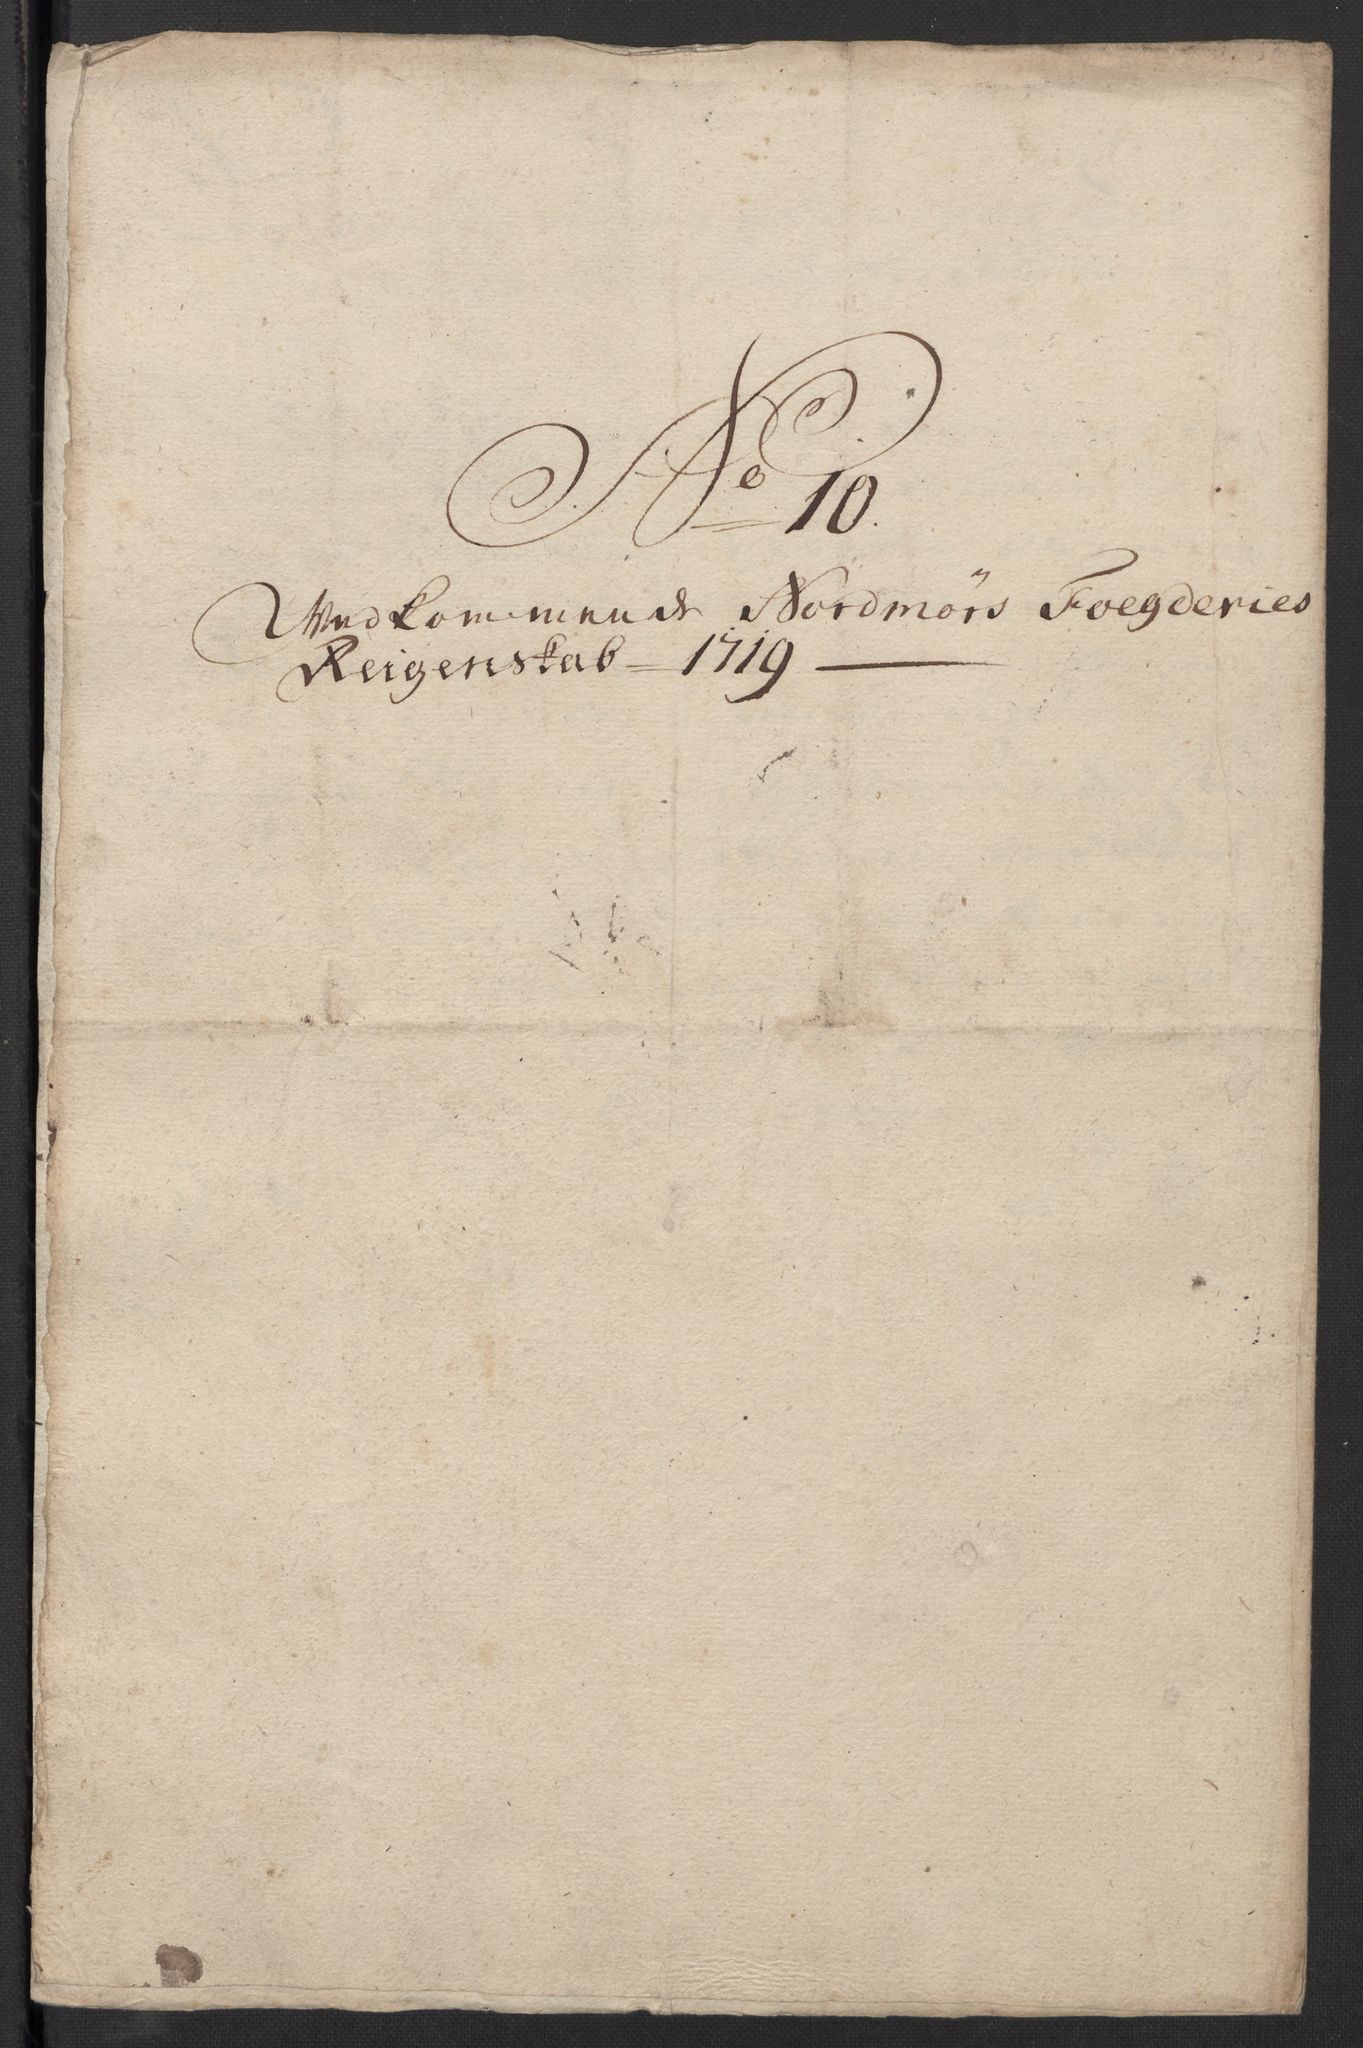 No 10.
Vedkommende Nordmörs Foegderies
Reigenskab 1719